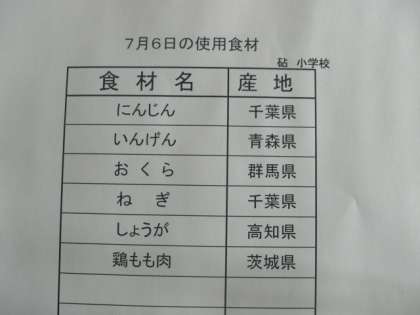 7月6日の使用食材
砧 小学校
食材名 産地
にんじん 千葉県
いんげん 青森県
おくら 群馬県
ねぎ 千葉県
しょうが 高知県
鶏もも肉 茨城県